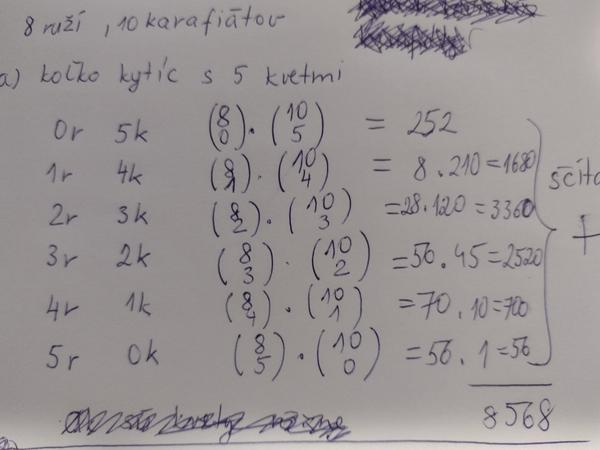 8 ruží, 10 karafiátov
a) koľko kytíc s 5 kvetmi
0r 5k (8 0) . (10 5) = 252
1r 4k (8 1) . (10 4) = 8 . 210 = 1680
2r 3k (8 2) . (10 3) = 28 . 120 = 3360
3r 2k (8 3) . (10 2) = 56 . 45 = 2520
4r 1k (8 4) . (10 1) = 70 . 10 = 700
5r 0k (8 5) . (10 0) = 56 . 1 = 56
+
8568